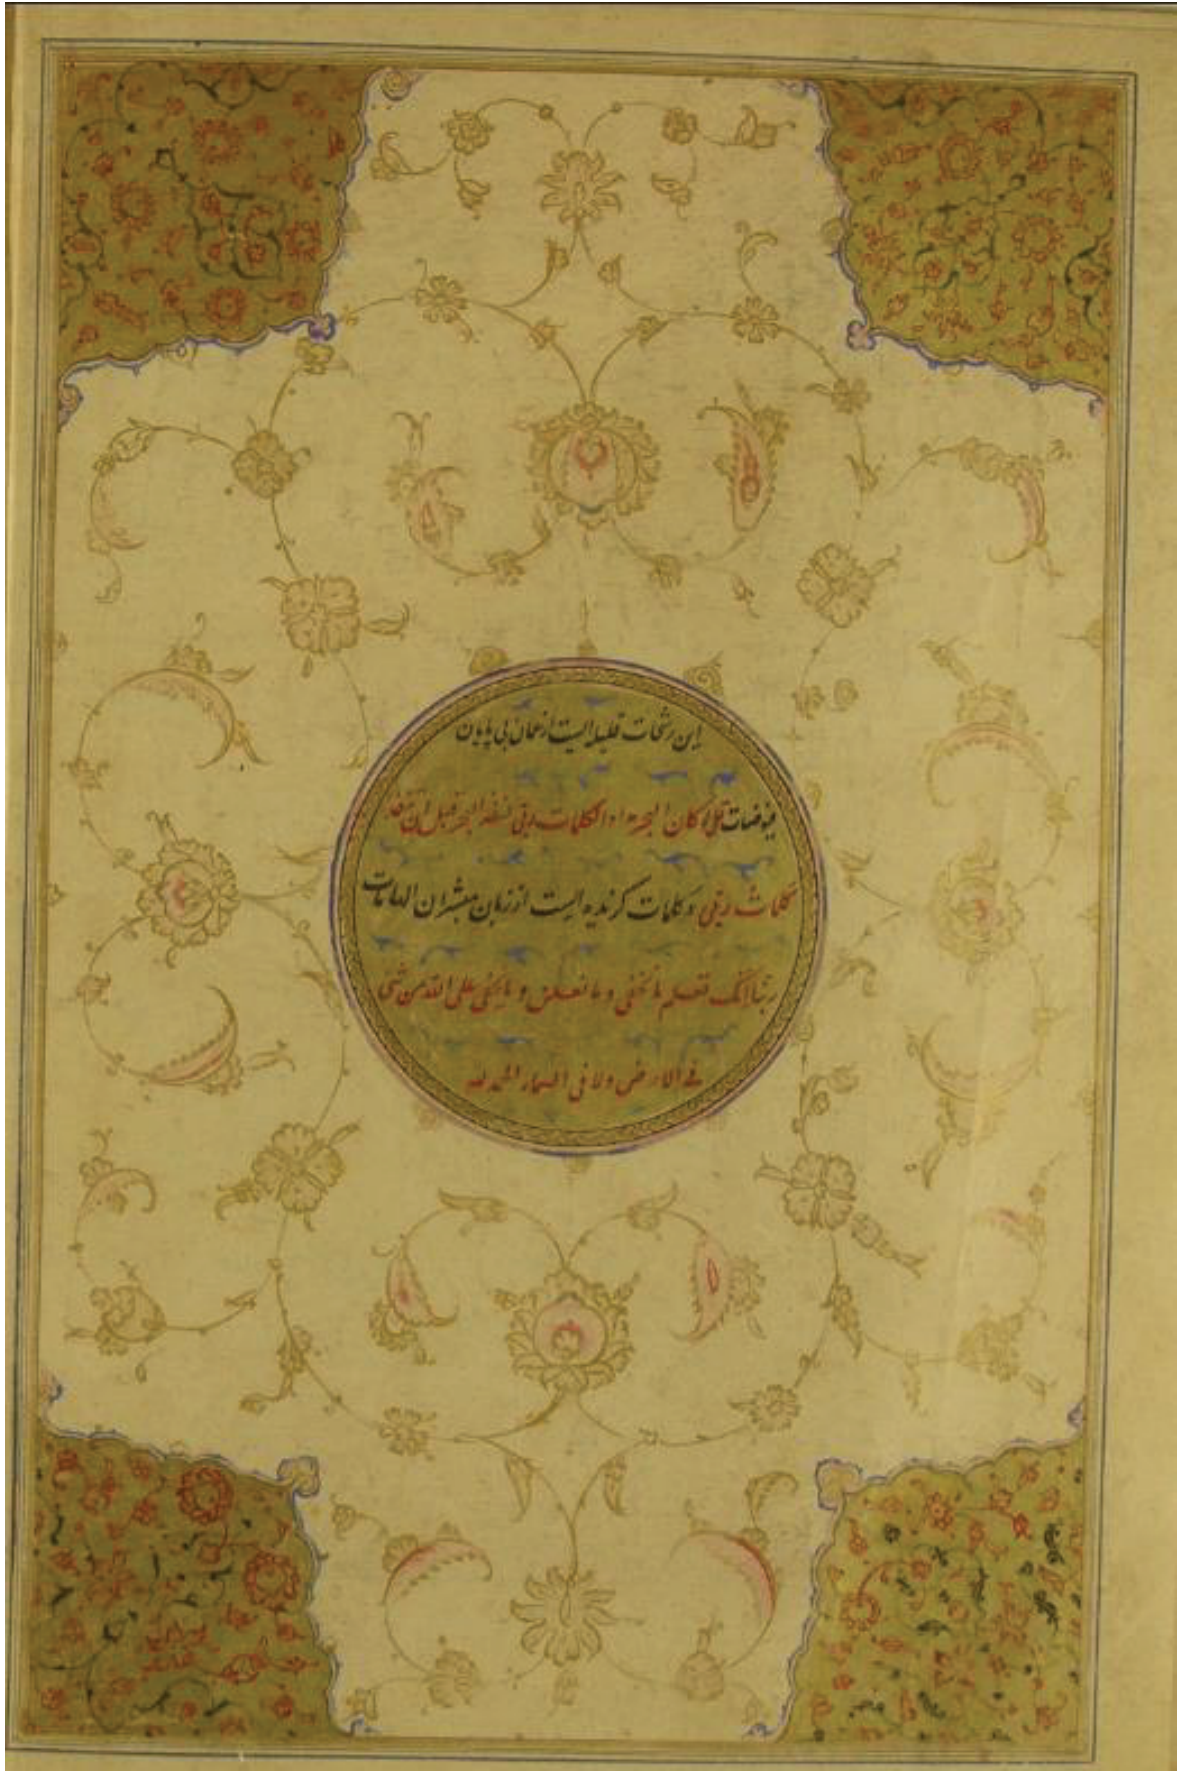 این رشحات قلیله ایست از عمان بی پایان
فیوضات قل لو کان البحر مدادا لکلمات ربی لنفد البحر قبل ان تنفد
کلمات ربی و کلمات گزیده ایست از زبان مبشران الهامات
ربنا انک تعلم ما نخفی و ما نعلن و ما یخفی علی الله من شی
فی الارض و لا فی السماء الحمد لله